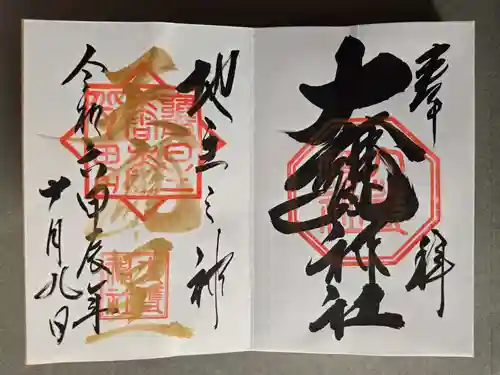 奉拝
大甕神社
地主之神
令和六甲辰年
十月九日